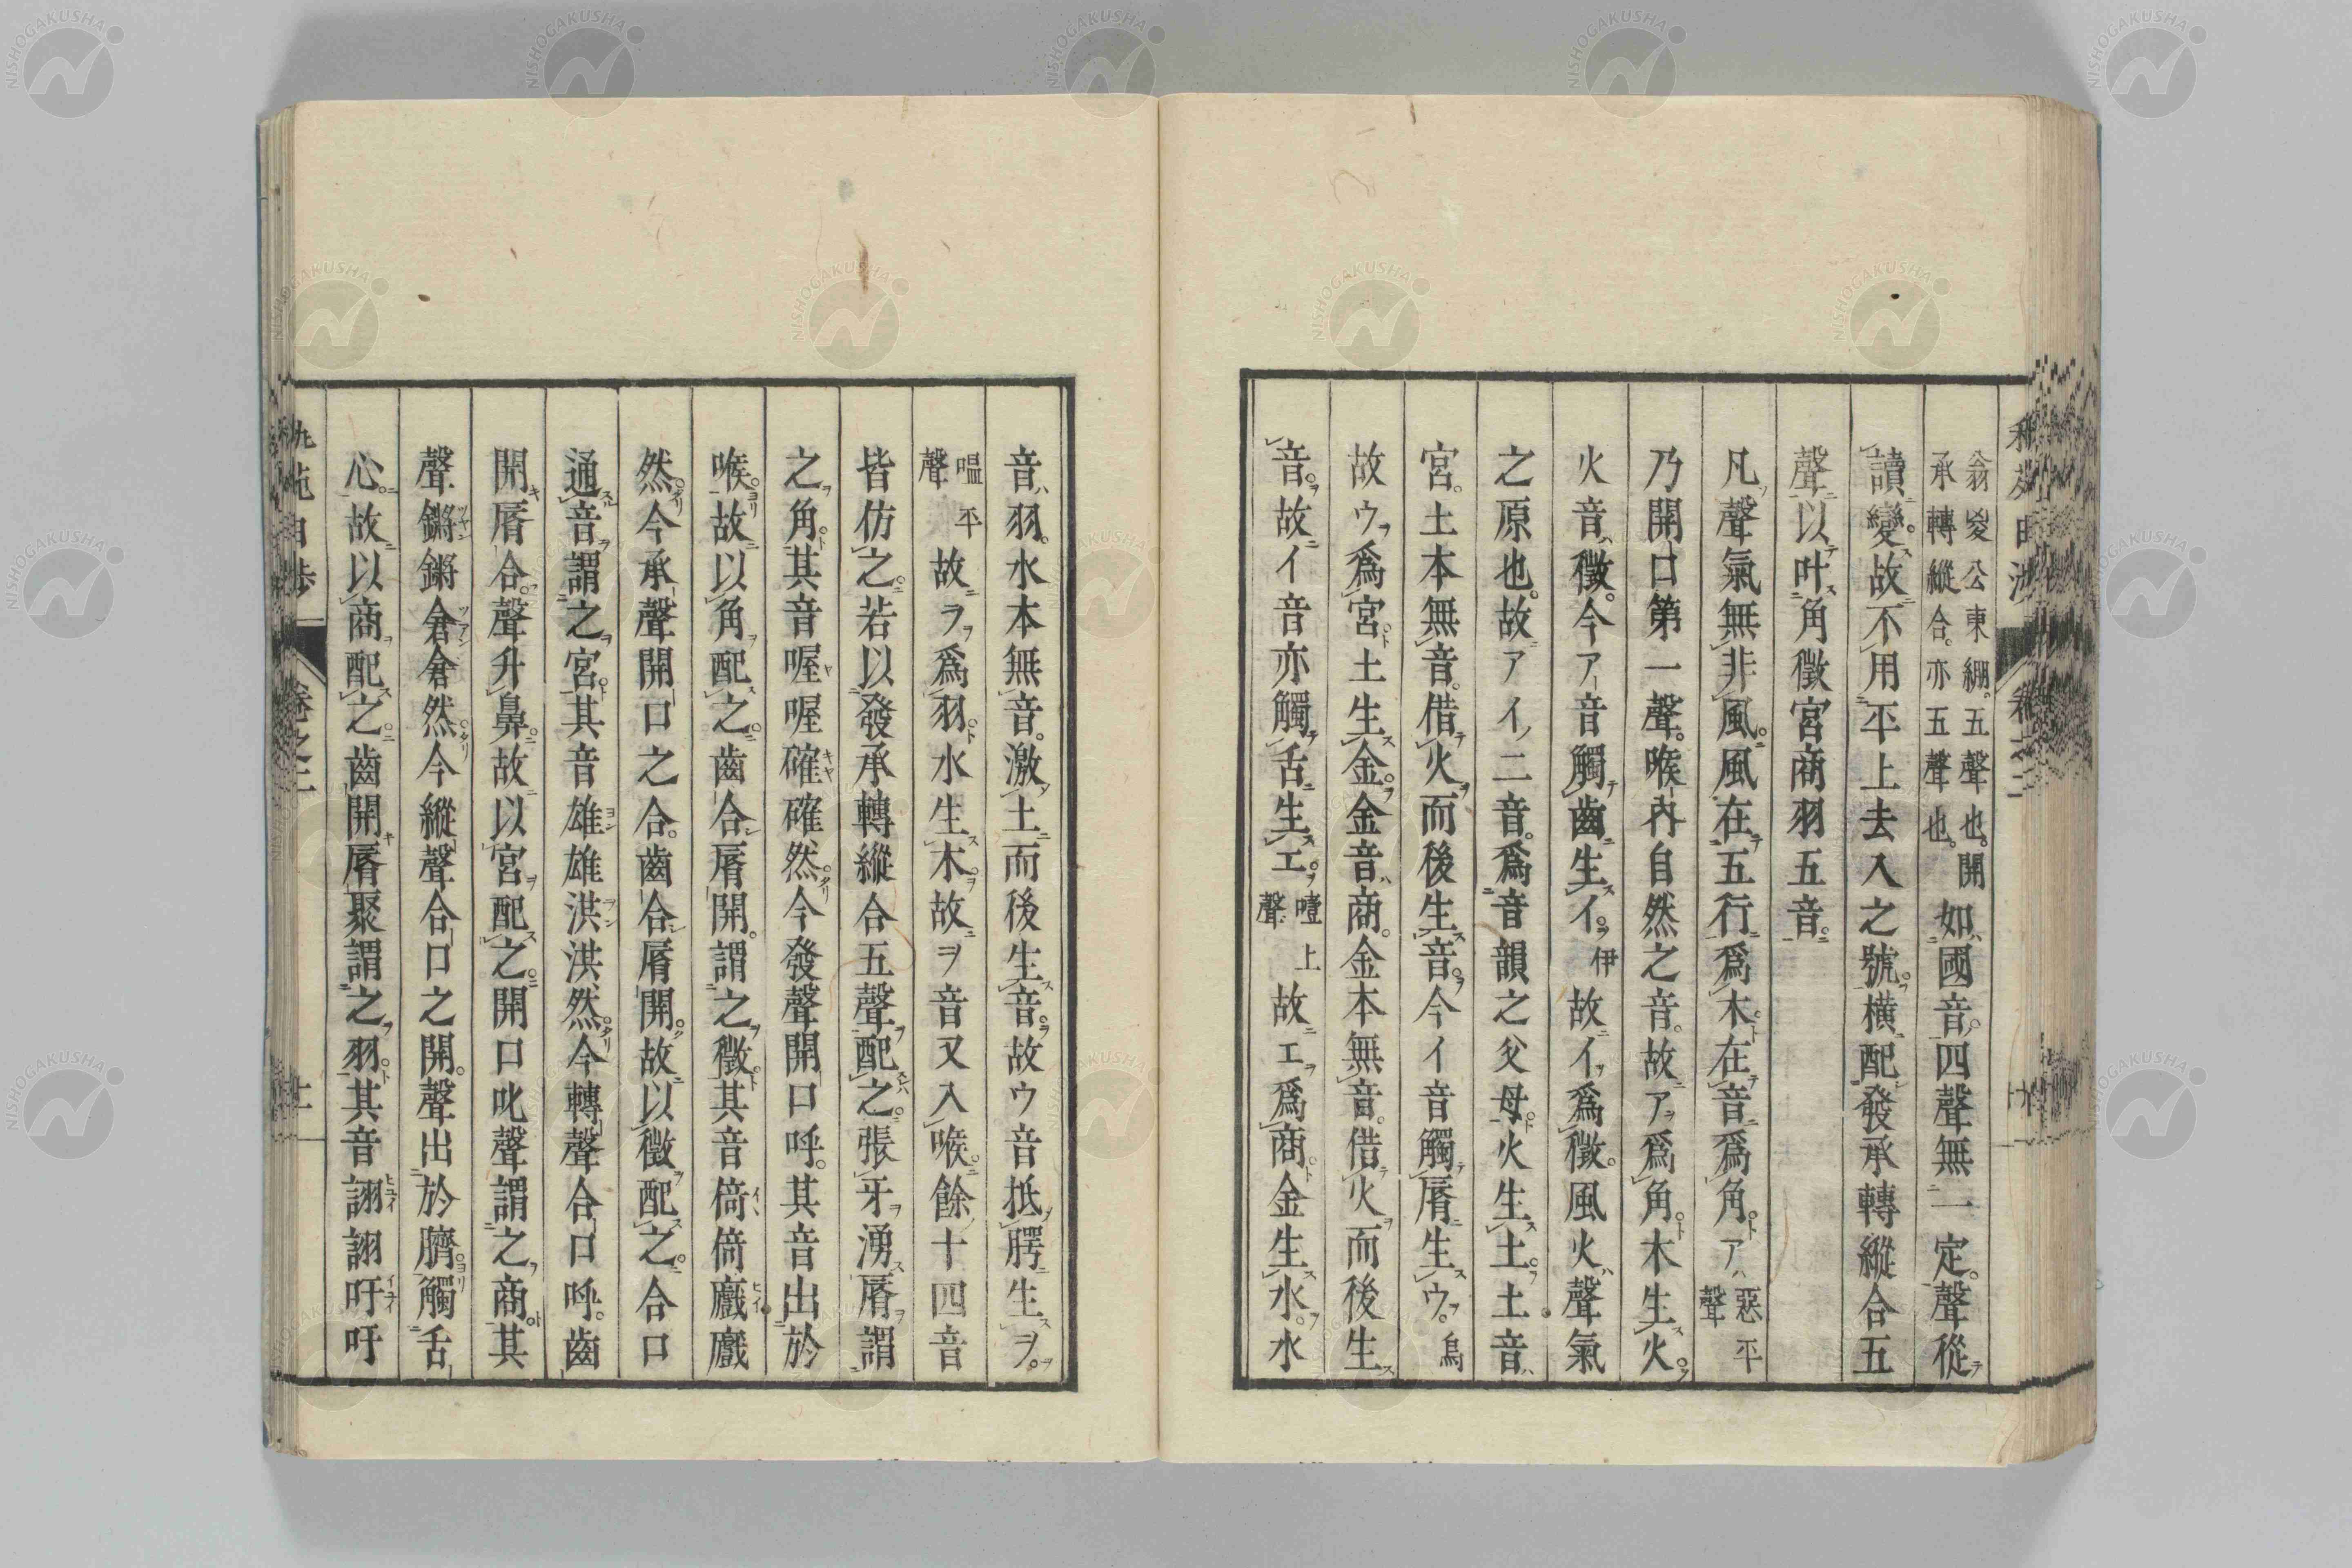 翁㚇公東綳。五聲也。開
承轉縱合。亦五聲也。
如國音。四聲無一定。聲從
讀變。故不用平上去入之號。横配發承轉縱合五
聲。以叶角徵宮商羽五音。
凡聲氣無非風。風在五行爲木。在音爲角。ア惡平聲
乃開口第一聲。喉內自然之音。故アヲ爲角。木生火。
火音徵。今アー音觸齒生イ。伊故イヲ爲徵。風火聲氣
之原也。故アイノ二音。爲音韻之父母。火生土。土音
宮。土本無音。借火而後生音。今イ音觸脣生ウ。烏
故ウヲ爲宮。土生金。金音商。金本無音。借火而後生
音。故イ音亦觸舌生エ。噎上聲故エヲ爲商。金生水。水
音羽。水本無音。激土而後生音。故ウ音抵腭生ヲ。
嗢平聲故ヲヲ爲羽。水生木。故ヲ音又入喉。餘十四音
皆仿之。若以發承轉縱合五聲配之。張牙湧脣謂
之角。其音喔喔確確然。今發聲開口呼。其音出於
喉。故以角配之。齒合脣開。謂之徵。其音倚倚戲戲
然。今承聲開口之合。齒合脣開。故以徵配之。合口
通音。謂之宮。其音雄雄洪洪然。今轉聲合口呼。齒
開脣合。聲升鼻。故以宮配之。開口叱聲謂之商。其
聲鏘鏘倉倉然。今縱聲合口之開。聲出於臍。觸舌
心。故以商配之。齒開脣聚謂之羽。其音詡詡吁吁